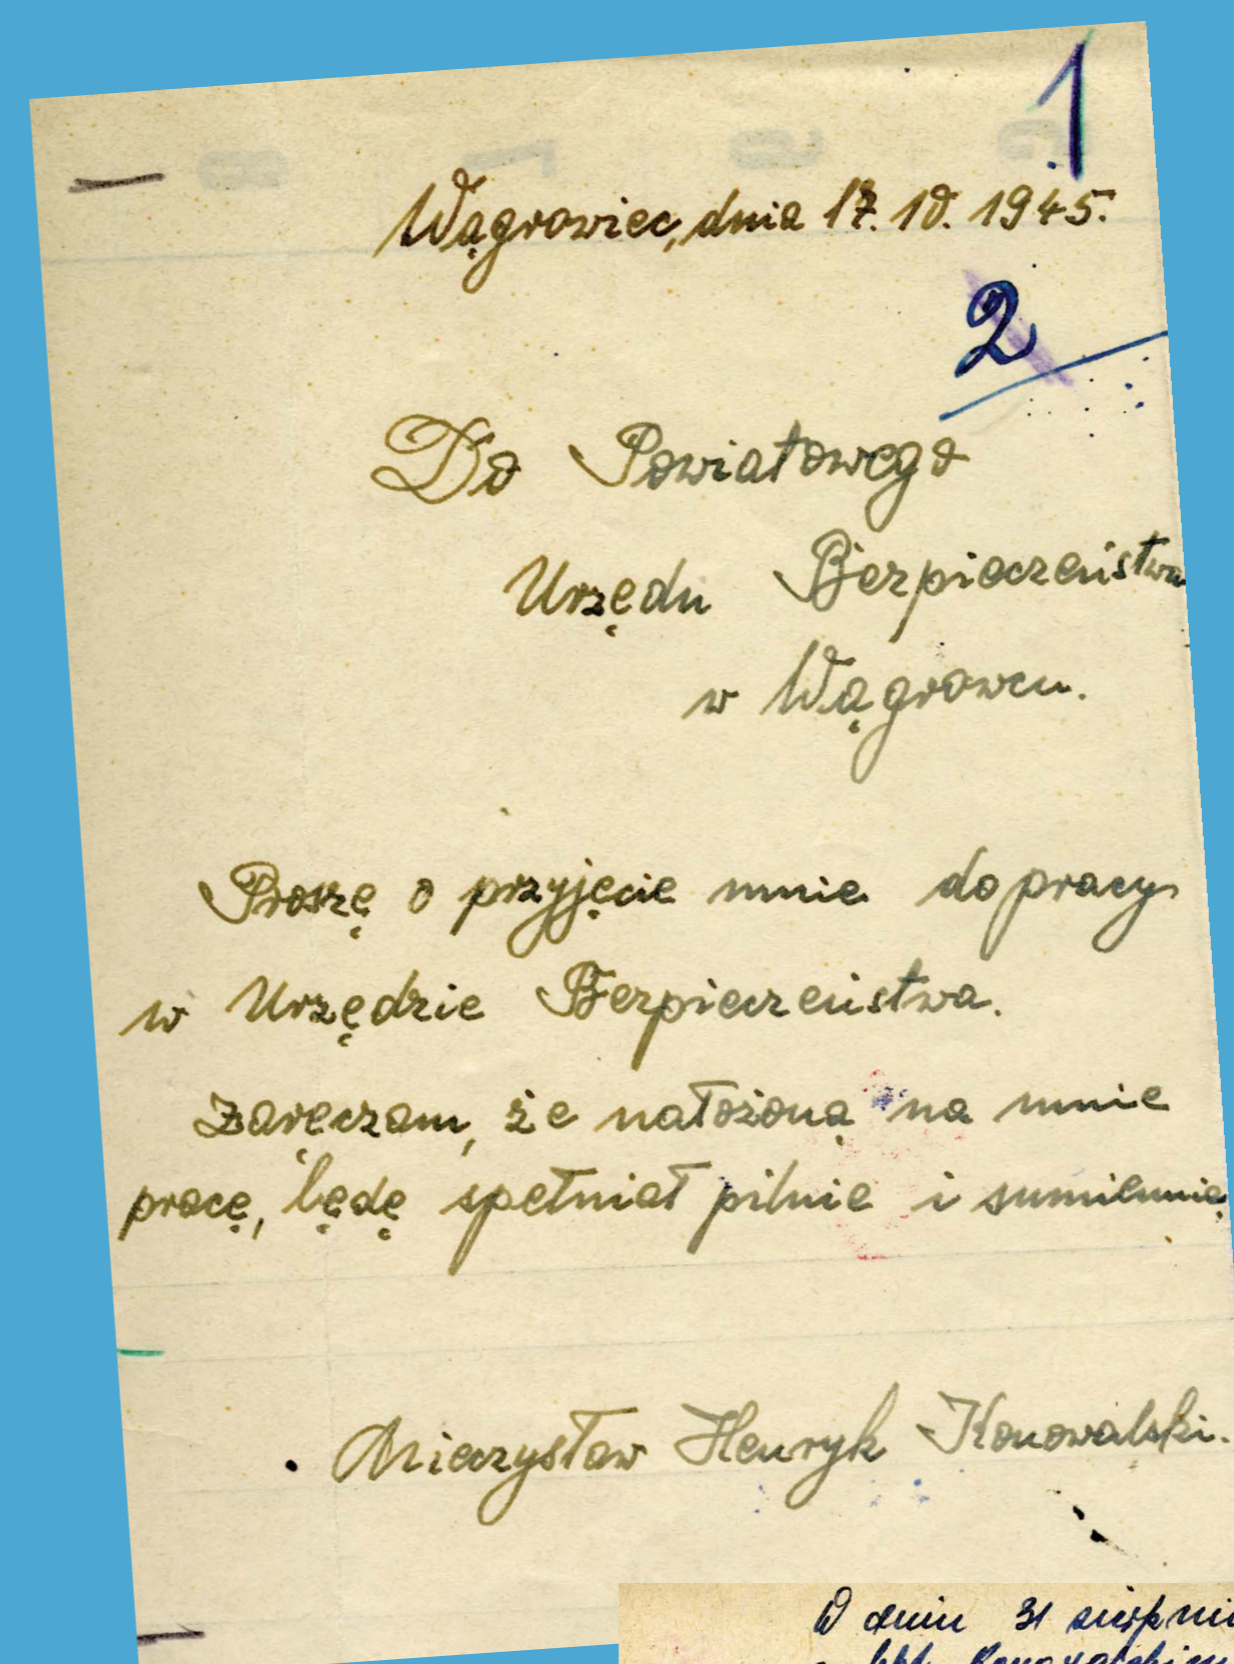 1
Wągrowiec, dnia 17. 10. 1945.
2
Do Powiatowego
Urzędu Bezpieczeństwa
w Wągrowcu.
Proszę o przyjęcie mnie do pracy
w Urzędzie Bezpieczeństwa.
Zaręczam, że nałożoną na mnie
pracę, będę spełniał pilnie i sumiennie
Mieczysław Henryk Konowalski.
W dniu 31 sierpni